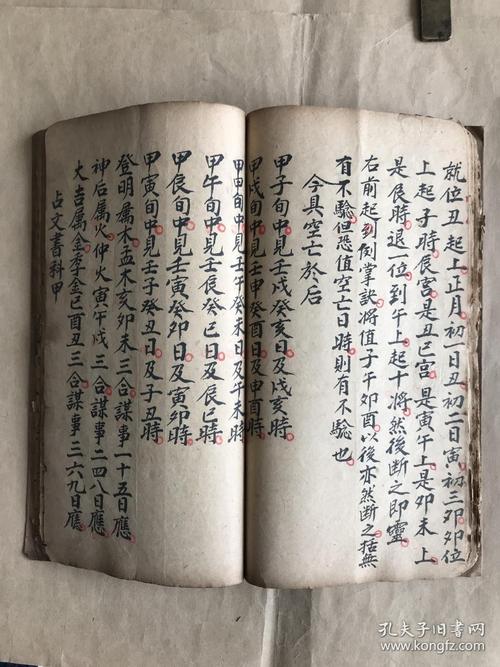 就位丑起上正月初一日丑初二日寅初三卯卯位
上起子時辰宮是丑巳宮是寅午上是卯未上
是辰時退一位到午上起十將然後断之即靈
右前起到倒掌訣將值子午卯酉以後亦然断之括無
有不驗但恐值空亡日時則有不驗也
今具空亡於后
甲子旬中見壬戌癸亥日及戌亥時
甲戌旬中見壬申癸酉日及申酉時
甲申旬中見壬午癸未日及午未時
甲午旬中見壬辰癸巳日及辰巳時
甲辰旬中見壬寅癸卯日及寅卯時
甲寅旬中見壬子癸丑日及子丑時
登明屬木孟木亥卯未三合謀事一十五日應
神后属火仲火寅午戌三合謀事二四八日應
大吉属金季金巳酉丑三合謀事三六九日應
占文書科甲
孔夫子旧书网
kongfz.com